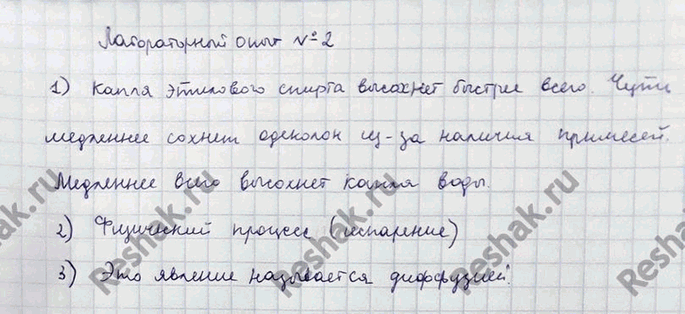 Лабораторный опыт №2
1) Капля этилового спирта высохнет быстрее всего. Чуть
медленнее сохнет одеколон из-за наличия примесей.
Медленнее всего высохнет капля воды.
2) Физический процесс (испарение)
3) Это явление называется диффузией.
Reshak.ru
Reshak.ru
Reshak.ru
Reshak.ru